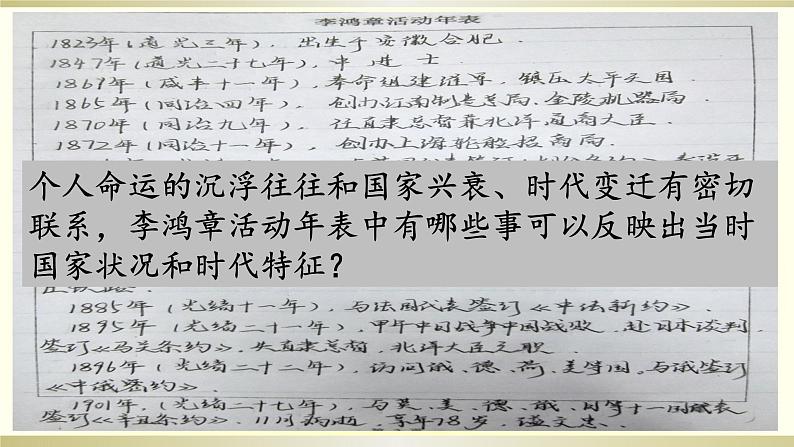 李鸿章活动年表
1823年(道光三年), 出生于安徽合肥.
1847年(道光二十七年), 中进士
1869年(咸丰十一年), 奉命组建淮军, 镇压太平天国.
1865年(同治四年), 创办江南制造总局.金陵机器局
1870年(同治九年), 任直隶总督兼北洋通商大臣.
1872年(同治十一年), 创办上海轮船招商局.
个人命运的沉浮往往和国家兴衰、时代变迁有密切
联系，李鸿章活动年表中有哪些事可以反映出当时
国家状况和时代特征？
1885年(光绪十一年), 与法国代表签订《中法新约》.
1895年(光绪二十一年), 甲午中日战争中国战败, 赴日本谈判,
签订《马关条约》, 失直隶总督, 北洋大臣之职.
1896年(光绪二十二年), 访问俄、德、荷、美等国. 与俄签订
《中俄密约》
1901年,(光绪二十七年), 与英、美、德、俄、日等十一国代表
签订《辛丑条约》. 11月病逝, 享年78岁, 谥文忠.